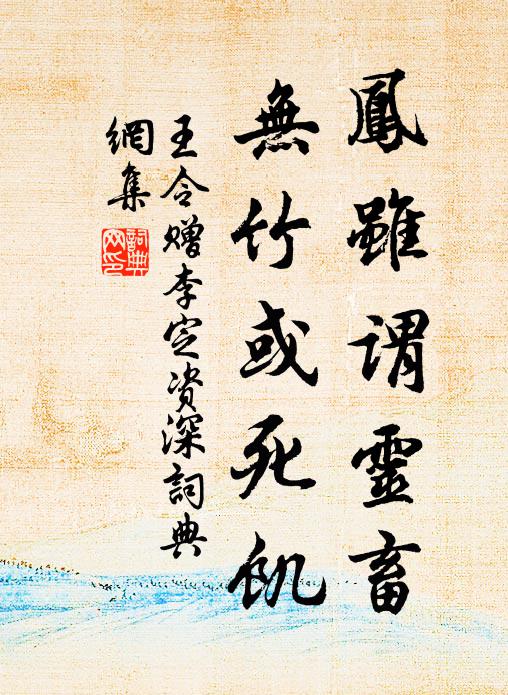 鳳雖謂靈畜
無竹或死飢
王令赠李定资深詞典
網集
詞典
网印